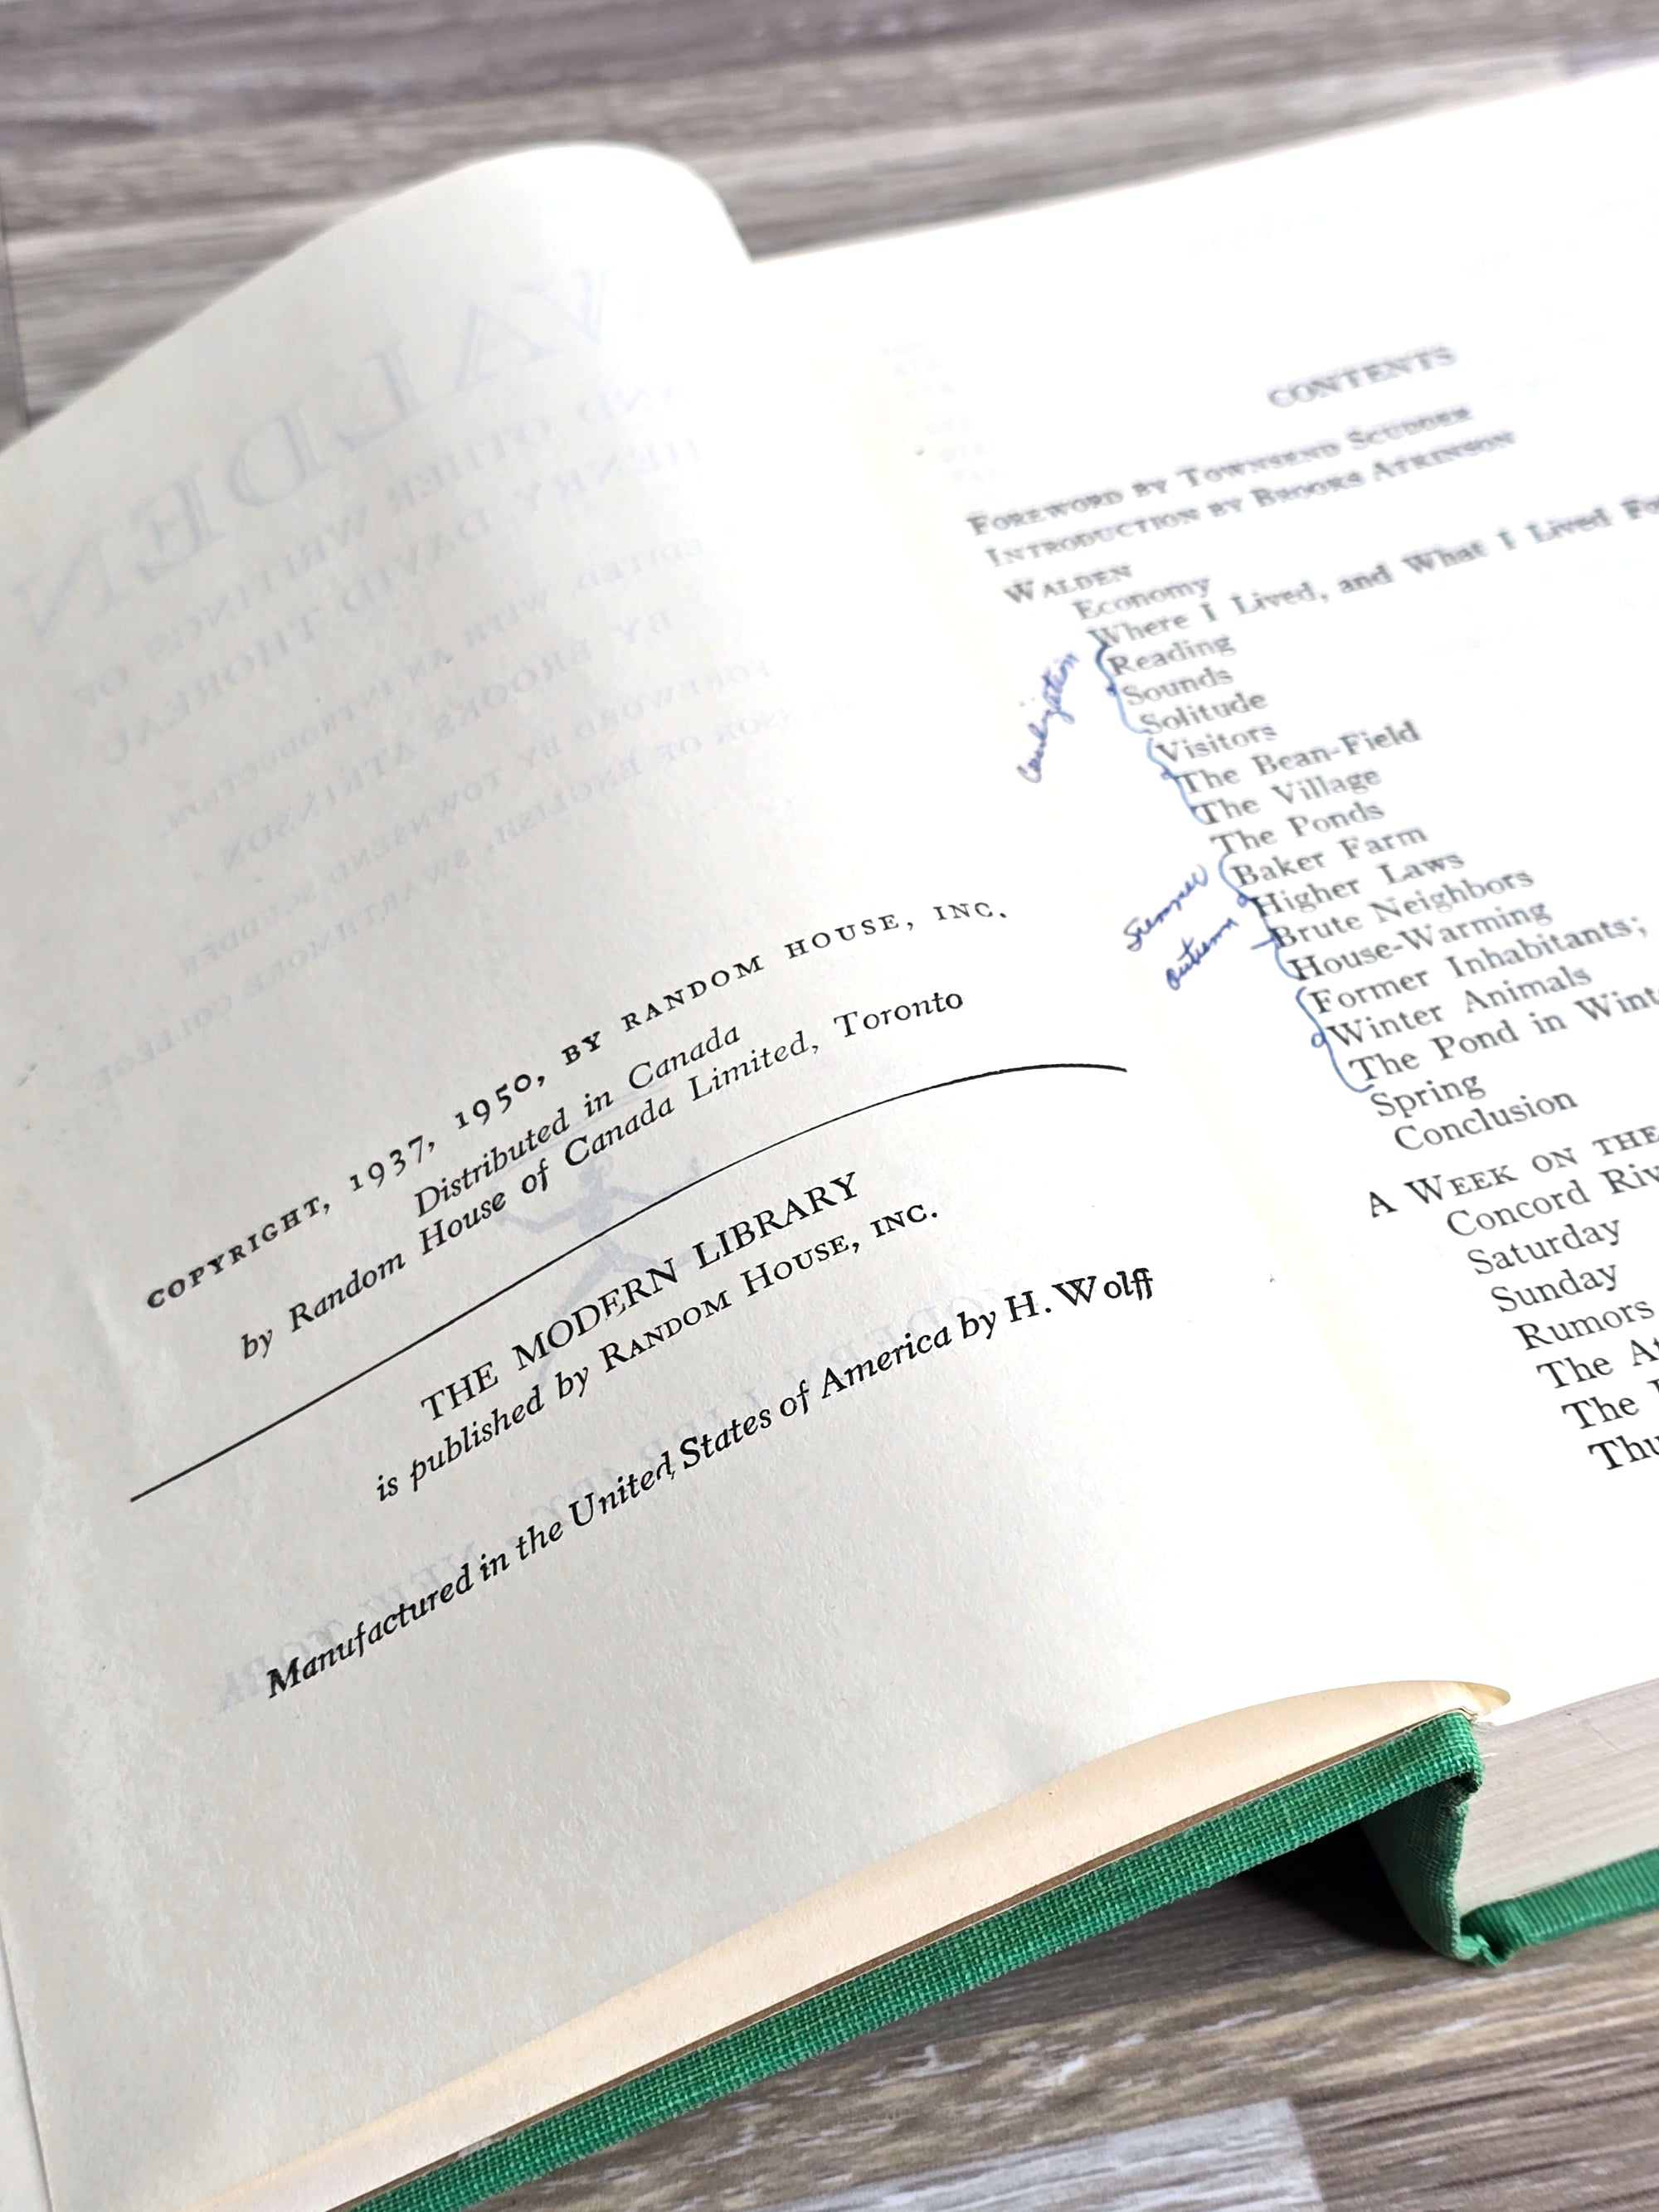 COPYRIGHT, 1937, 1950, BY RANDOM HOUSE, INC.
Distributed in Canada
by Random House of Canada Limited, Toronto
THE MODERN LIBRARY
is published by RANDOM HOUSE, INC.
Manufactured in the United States of America by H. Wolff
CONTENTS
FOREWORD BY TOWNSEND SCUDDER
INTRODUCTION BY BROOKS ATKINSON
WALDEN
Economy
Where I Lived, and What I Lived
Reading
Sounds
Solitude
Visitors
The Bean-Field
The Village
The Ponds
Baker Farm
Higher Laws
Brute Neighbors
House-Warming
Former Inhabitants;
Winter Animals
The Pond in
Spring
Conclusion
A WEEK ON THE
Concord
Saturday
Sunday
Rumors
The
The
Summer
autumn